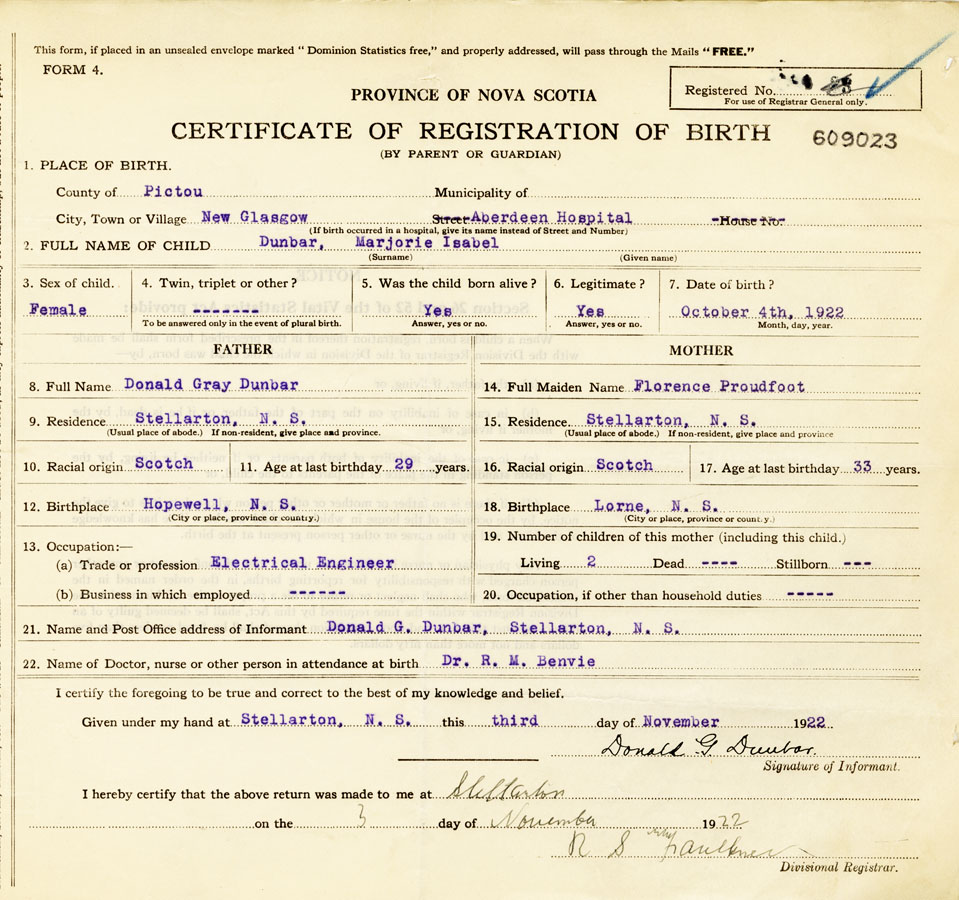 This form, if placed in an unsealed envelope marked "Dominion Statistics free," and properly addressed, will pass through the Mails "FREE."
FORM 4.
Registered No.
For use of Registrar General only.
PROVINCE OF NOVA SCOTIA
CERTIFICATE OF REGISTRATION OF BIRTH 609023
(BY PARENT OR GUARDIAN)
1. PLACE OF BIRTH.
County of Pictou Municipality of
City, Town or Village New Glasgow Street Aberdeen Hospital House No.
(If birth occurred in a hospital, give its name instead of Street and Number)
2. FULL NAME OF CHILD Dunbar, Marjorie Isabel
(Surname) (Given name)
3. Sex of child. 4. Twin, triplet or other? 5. Was the child born alive? 6. Legitimate? 7. Date of birth?
Female ------- Yes Yes October 4th, 1922
To be answered only in the event of plural birth. Answer, yes or no. Answer, yes or no. Month, day, year.
FATHER MOTHER
8. Full Name Donald Gray Dunbar 14. Full Maiden Name Florence Proudfoot
9. Residence Stellarton, N. S. 15. Residence. Stellarton, N. S.
(Usual place of abode.) If non-resident, give place and province. (Usual place of abode.) If non-resident, give place and province
10. Racial origin Scotch 11. Age at last birthday 29 years. 16. Racial origin Scotch 17. Age at last birthday 33 years.
12. Birthplace Hopewell, N. S. 18. Birthplace Lorne, N. S.
(City or place, province or country.) (City or place, province or country.)
13. Occupation:— 19. Number of children of this mother (including this child.)
(a) Trade or profession Electrical Engineer Living 2 Dead ---- Stillborn ---
(b) Business in which employed ------ 20. Occupation, if other than household duties -----
21. Name and Post Office address of Informant Donald G. Dunbar, Stellarton, N. S.
22. Name of Doctor, nurse or other person in attendance at birth Dr. R. M. Benvie
I certify the foregoing to be true and correct to the best of my knowledge and belief.
Given under my hand at Stellarton, N. S. this third day of November 1922
Donald G Dunbar.
Signature of Informant.
I hereby certify that the above return was made to me at Stellarton
on the 3 day of November 1922
R S Faulkner
Divisional Registrar.